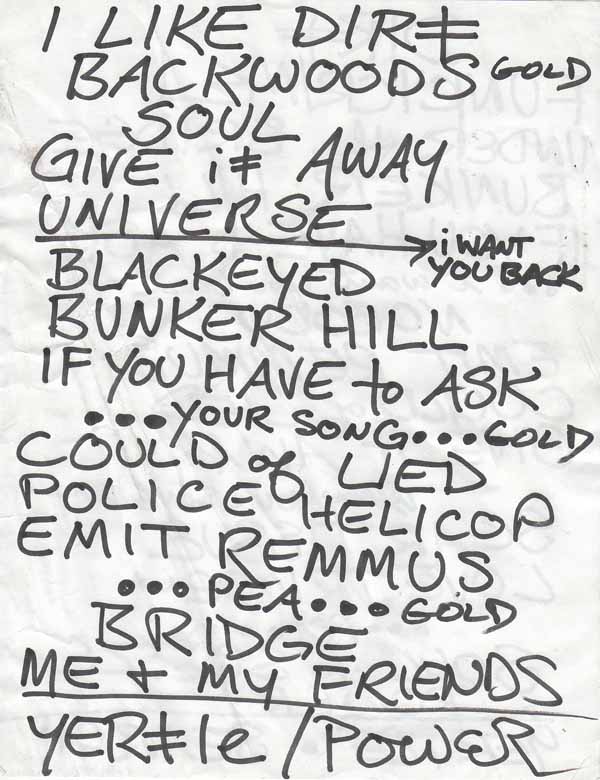 I LIKE DIRt
BACKWOODS GOLD
SOUL
GIVE it AWAY
UNIVERSE
i WANT
YOU BACK
BLACKEYED
BUNKER HILL
IF YOU HAVE to ASK
•••YOUR SONG•••GOLD
COULD of LIED
POLICE HELICOP
EMIT REMMUS
•••PEA•••GOLD
BRIDGE
ME + MY FRIENDS
YERtle/POWER